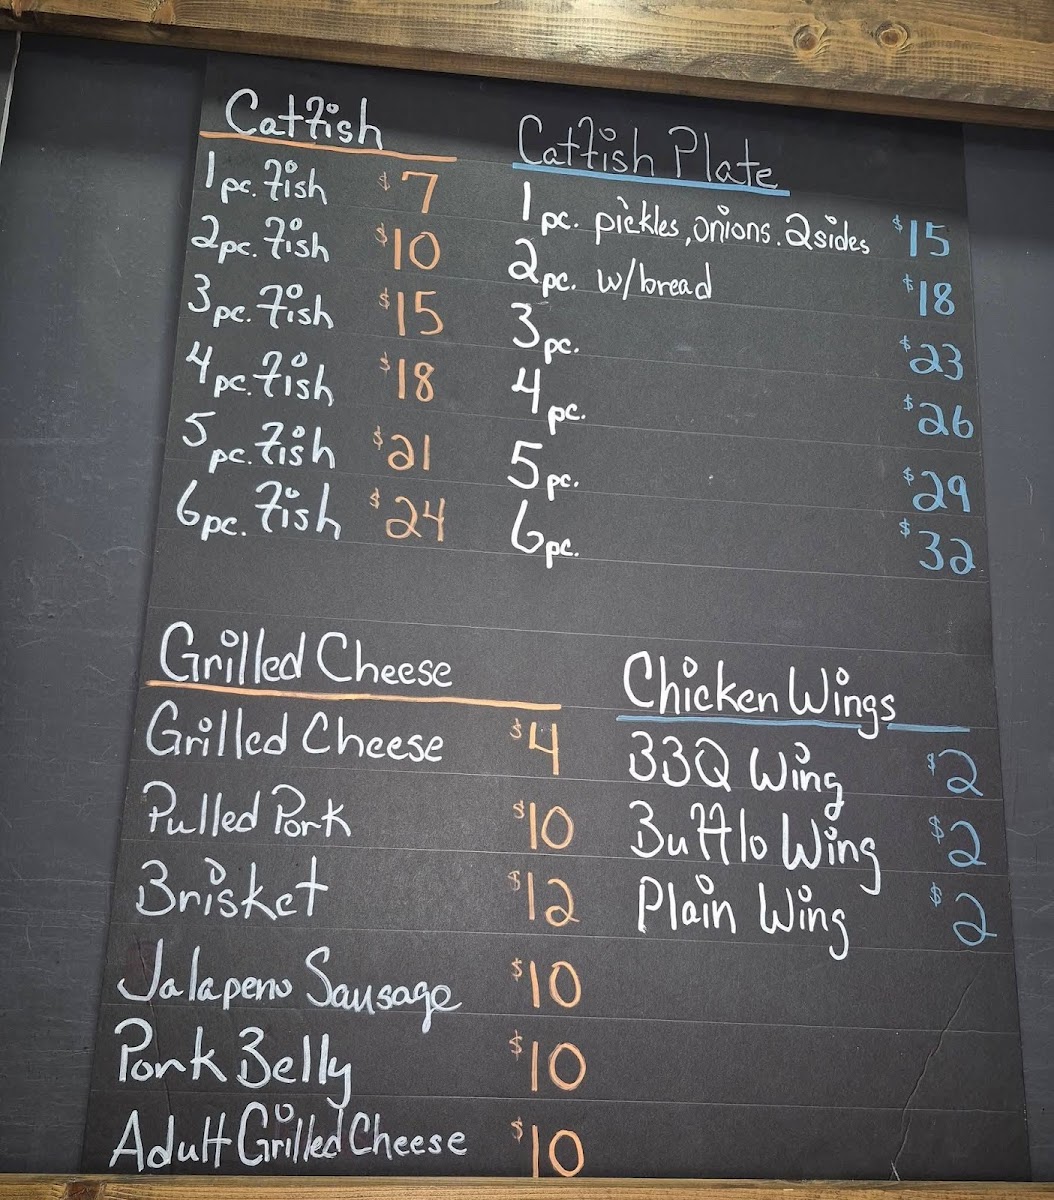 Catfish
1pc. fish $7
2pc. fish $10
3pc. fish $15
4pc. fish $18
5pc. fish $21
6pc. fish $24
Catfish Plate
1pc. pickles, onions. 2sides $15
2pc. w/bread $18
3pc. $23
4pc. $26
5pc. $29
6pc. $32
Grilled Cheese
Grilled Cheese $4
Pulled Pork $10
Brisket $12
Jalapeno Sausage $10
Pork Belly $10
Adult Grilled Cheese $10
Chicken Wings
BBQ Wing $2
Bufflo Wing $2
Plain Wing $2